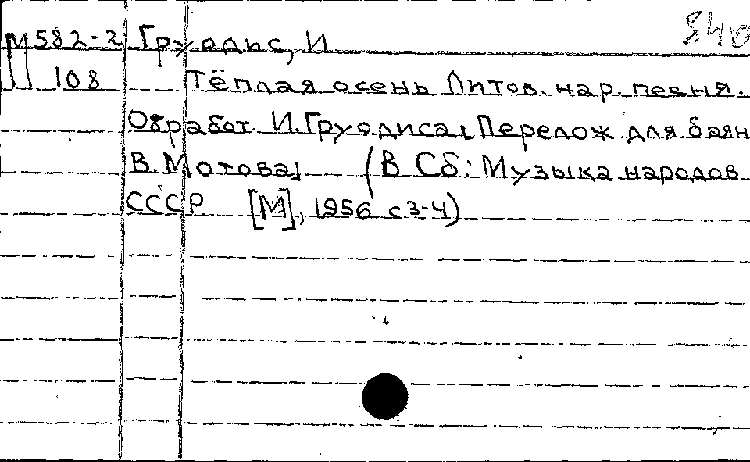 М582-2 Груодис, И 840
108 Тёплая осень Литов. нар. песня.
Обработ. И. Груодиса, Перелож для баян
В. Мотова, (В сб: Музыка народов
СССР [М], 1956 с 3-4)